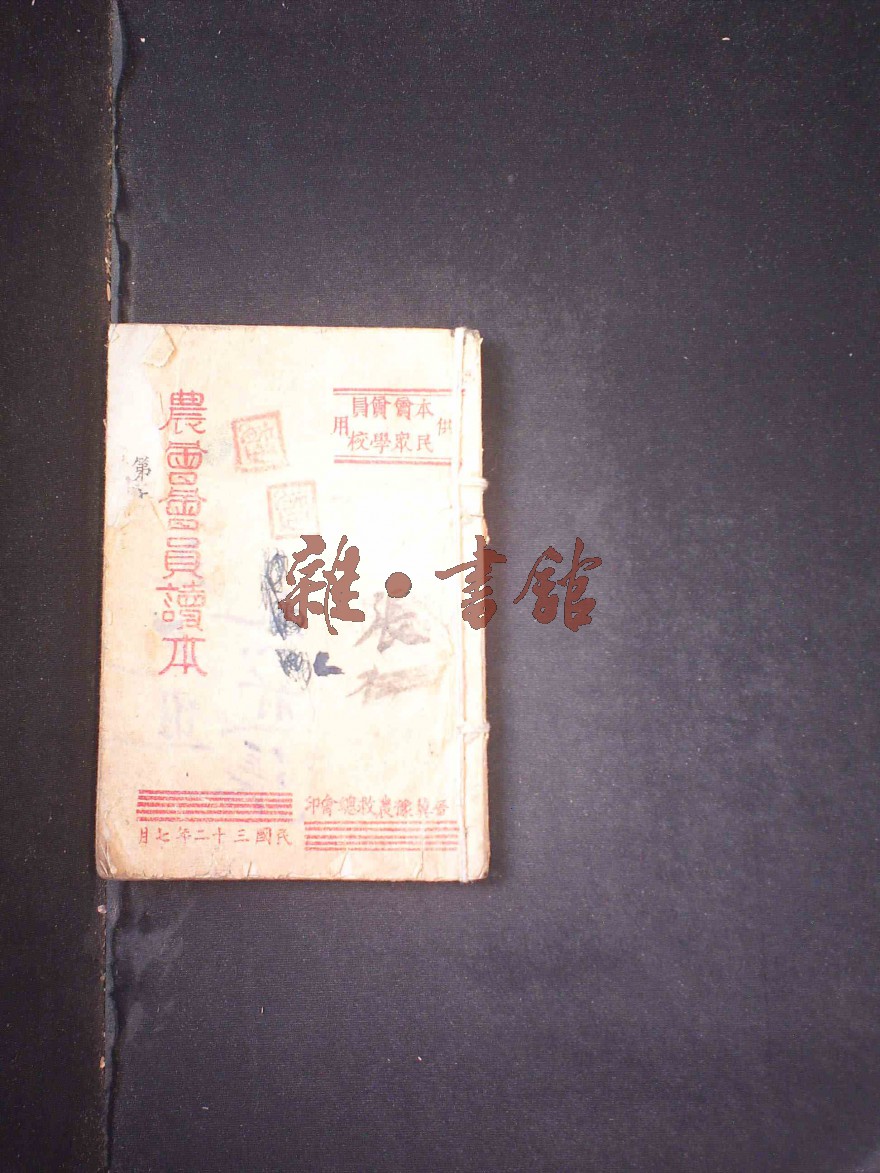 供
本會會員
民眾學校
用
農會會員讀本
第
張
雜·書館
晉冀豫農救總會印
民國三十二年七月